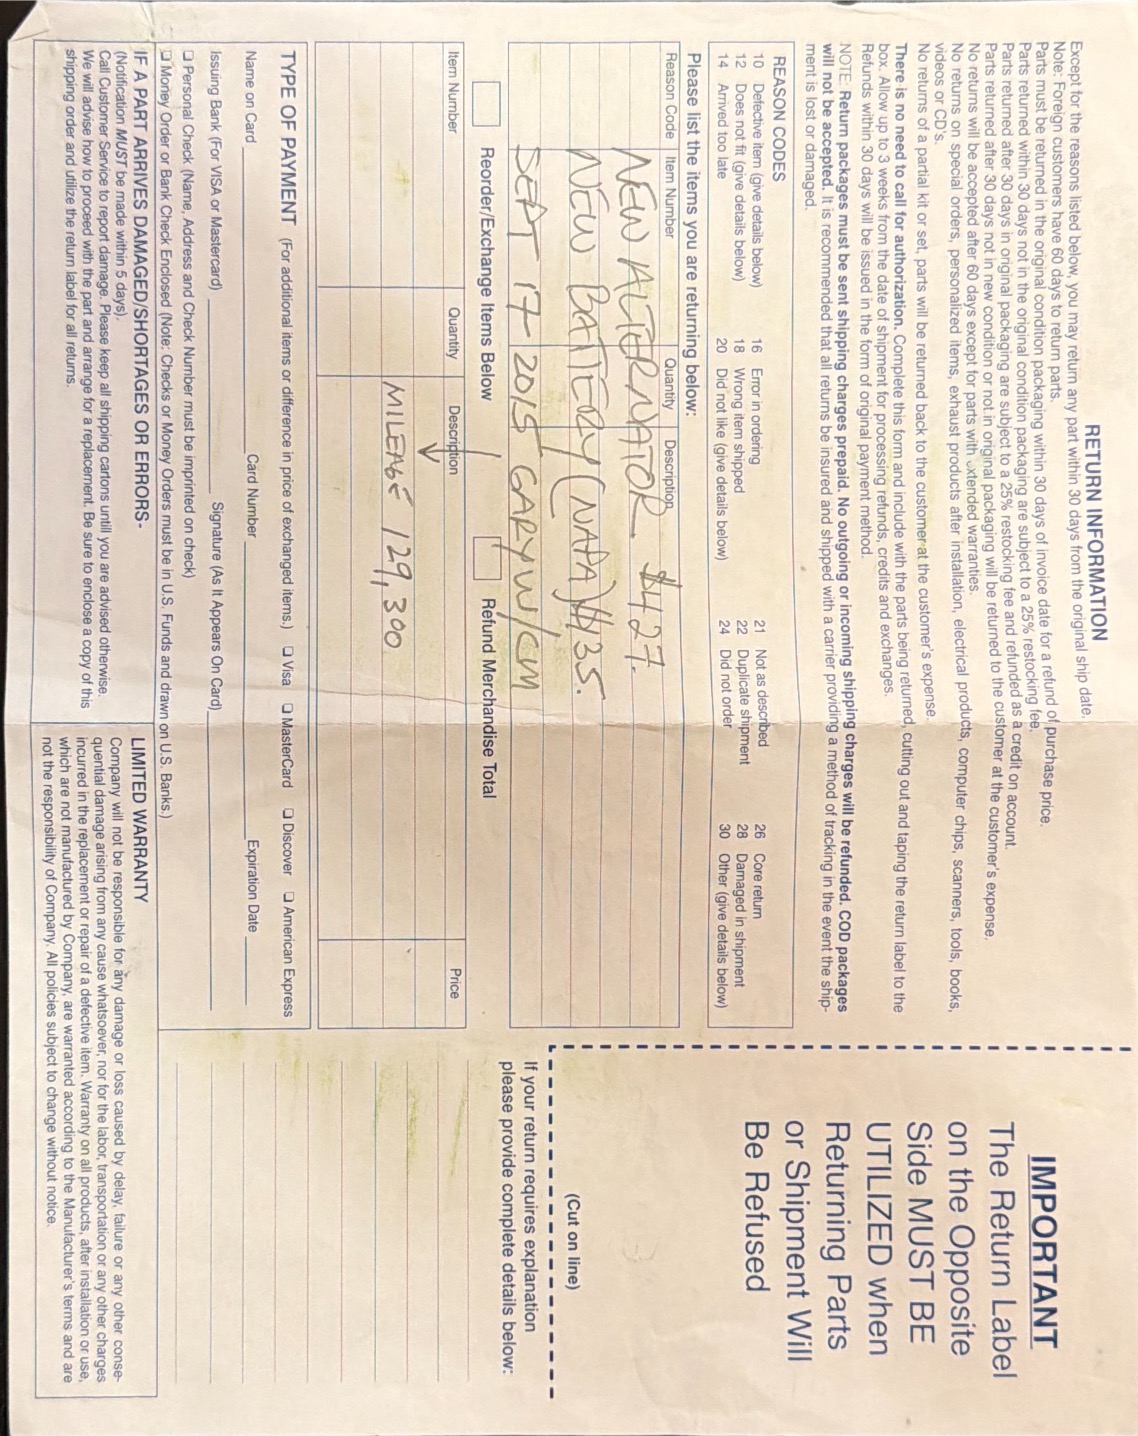 RETURN INFORMATION
Except for the reasons listed below, you may return any part within 30 days from the original ship date.
Note: Foreign customers have 60 days to return parts.
Parts must be returned in the original condition packaging within 30 days of invoice date for a refund of purchase price.
Parts returned within 30 days not in the original condition packaging are subject to a 25% restocking fee.
Parts returned after 30 days in original packaging are subject to a 25% restocking fee and refunded as a credit on account.
Parts returned after 30 days not in new condition or not in original packaging will be returned to the customer at the customer's expense.
No returns will be accepted after 60 days except for parts with extended warranties.
No returns on special orders, personalized items, exhaust products after installation, electrical products, computer chips, scanners, tools, books,
videos or CD's.
No returns of a partial kit or set, parts will be returned back to the customer at the customer's expense.
There is no need to call for authorization. Complete this form and include with the parts being returned, cutting out and taping the return label to the
box. Allow up to 3 weeks from the date of shipment for processing refunds, credits and exchanges.
Refunds within 30 days will be issued in the form of original payment method.
NOTE: Return packages must be sent shipping charges prepaid. No outgoing or incoming shipping charges will be refunded. COD packages
will not be accepted. It is recommended that all returns be insured and shipped with a carrier providing a method of tracking in the event the ship-
ment is lost or damaged.
REASON CODES
10 Defective item (give details below) 16 Error in ordering 21 Not as described 26 Core return
12 Does not fit (give details below) 18 Wrong item shipped 22 Duplicate shipment 28 Damaged in shipment
14 Arrived too late 20 Did not like (give details below) 24 Did not order 30 Other (give details below)
Please list the items you are returning below:
Reason Code Item Number Quantity Description
NEW ALTERNATOR $427.
NEW BATTERY (NAPA) $135.
SEPT 17 2015 GARY W/CM
Reorder/Exchange Items Below Refund Merchandise Total
Item Number Quantity Description Price
MILEAGE 129,300
TYPE OF PAYMENT (For additional items or difference in price of exchanged items.) ❑ Visa ❑ MasterCard ❑ Discover ❑ American Express
Name on Card Card Number Expiration Date
Issuing Bank (For VISA or Mastercard) Signature (As It Appears On Card)
❑ Personal Check (Name, Address and Check Number must be imprinted on check)
❑ Money Order or Bank Check Enclosed (Note: Checks or Money Orders must be in U.S. Funds and drawn on U.S. Banks.)
IF A PART ARRIVES DAMAGED/SHORTAGES OR ERRORS-
(Notification MUST be made within 5 days).
Call Customer Service to report damage. Please keep all shipping cartons until you are advised otherwise.
We will advise how to proceed with the part and arrange for a replacement. Be sure to enclose a copy of this
shipping order and utilize the return label for all returns.
LIMITED WARRANTY
Company will not be responsible for any damage or loss caused by delay, failure or any other conse-
quential damage arising from any cause whatsoever, nor for the labor, transportation or any other charges
incurred in the replacement or repair of a defective item. Warranty on all products, after installation or use,
which are not manufactured by Company, are warranted according to the Manufacturer's terms and are
not the responsibility of Company. All policies subject to change without notice.
IMPORTANT
The Return Label
on the Opposite
Side MUST BE
UTILIZED when
Returning Parts
or Shipment Will
Be Refused
(Cut on line)
If your return requires explanation
please provide complete details below: